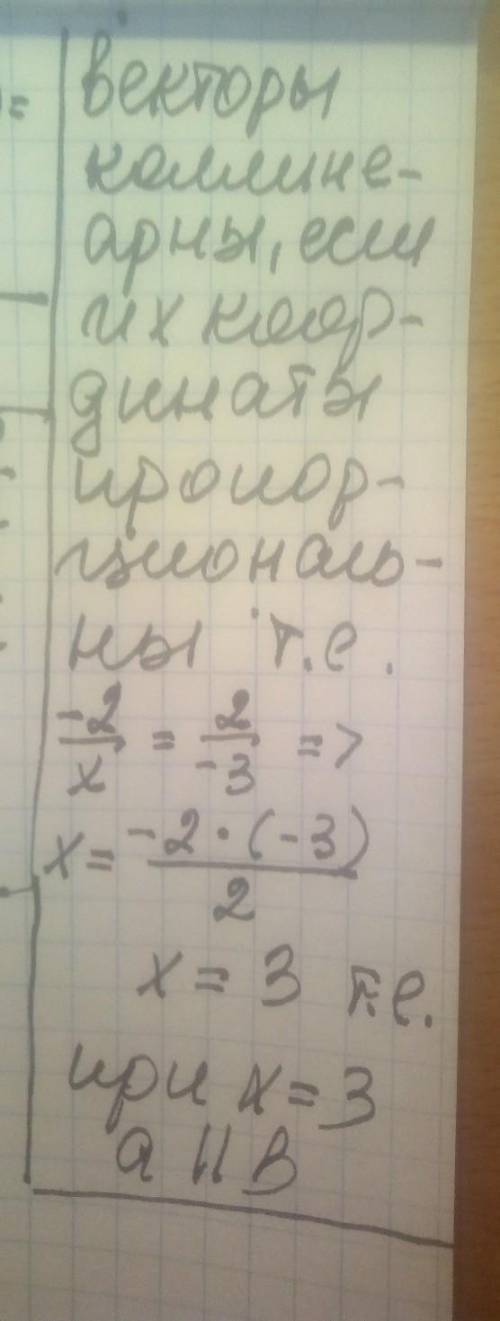 векторы
коллине-
арны, если
их коор-
динаты
пропор-
циональ-
ны т.е.
-2/x = 2/-3 =>
x = -2·(-3)/2
x = 3 т.е.
при x = 3
a || b